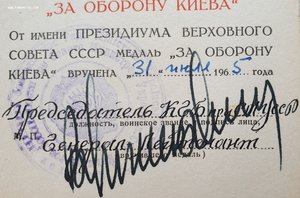 „ЗА ОБОРОНУ КИЕВА"
От имени ПРЕЗИДИУМА ВЕРХОВНОГО
СОВЕТА СССР МЕДАЛЬ „ЗА ОБОРОНУ
КИЕВА" ВРУЧЕНА „31" июля 1965 года
Председатель
должность, воинское звание и подпись лица,
М. П. Генерал лейтенант
медаль)